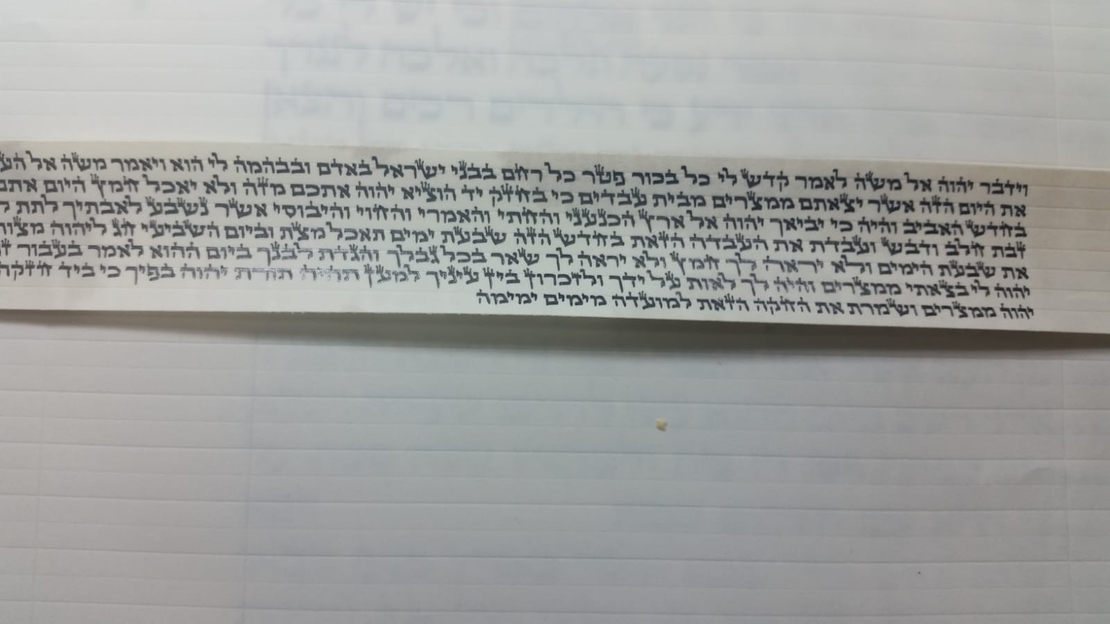 וידבר יהוה אל משה לאמר קדש לי כל בכור פטר כל רחם בבני ישראל באדם ובבהמה לי הוא ויאמר משה אל
את היום הזה אשר יצאתם ממצרים מבית עבדים כי בחזק יד הוציא יהוה אתכם מזה ולא יאכל חמץ היום אתם
בחדש האביב והיה כי יביאך יהוה אל ארץ הכנעני והחתי והאמרי והחוי והיבוסי אשר נשבע לאבתיך לתת
זבת חלב ודבש ועבדת את העבדה הזאת בחדש הזה שבעת ימים תאכל מצת וביום השביעי חג ליהוה מצות
את שבעת הימים ולא יראה לך חמץ ולא יראה לך שאר בכל גבלך והגדת לבנך ביום ההוא לאמר בעבור
יהוה לי בצאתי ממצרים והיה לך לאות על ידך ולזכרון בין עיניך למען תהיה תורת יהוה בפיך כי ביד חזקה
יהוה ממצרים ושמרת את החקה הזאת למועדה מימים ימימה